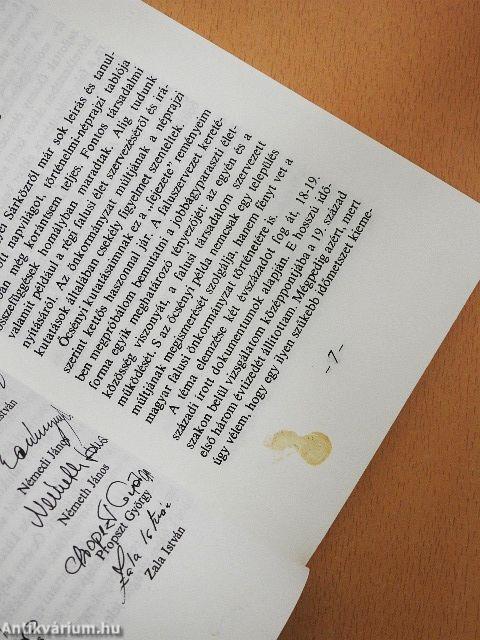 yei Sárközről már sok leírás és tanul-
ott napvilágot, történelmi-néprajzi tablója
ban még korántsem teljes. Fontos társadalmi
összefüggések homályban maradtak. Alig tudunk
valamit például a régi falusi élet szervezéséről és irá-
nyításáról. Az önkormányzat múltjának a néprajzi
kutatások általában csekély figyelmet szenteltek.
Őcsényi kutatásaimnak ez a „fejezete" reményeim
szerint kettős haszonnal jár. A faluszervezet kereté-
ben megpróbálom bemutatni a jobbágyparaszti élet-
forma egyik meghatározó tényezőjét: az egyén és a
közösség viszonyát, a falusi társadalom szervezett
működését. S az őcsényi példa nemcsak egy település
múltjának megismerését szolgálja, hanem fényt vet a
magyar falusi önkormányzat történetére is.
A téma elemzése két évszázadot fog át, 18-19.
századi írott dokumentumok alapján. E hosszú idő-
szakon belül vizsgálatom középpontjába a 19. század
első három évtizedét állítottam. Mégpedig azért, mert
úgy vélem, hogy egy ilyen szűkebb időmetszet kieme-
- 7 -
István
Némedi János
Németh János
Propszt György
Zala István
Zala István
Antikvárium.hu